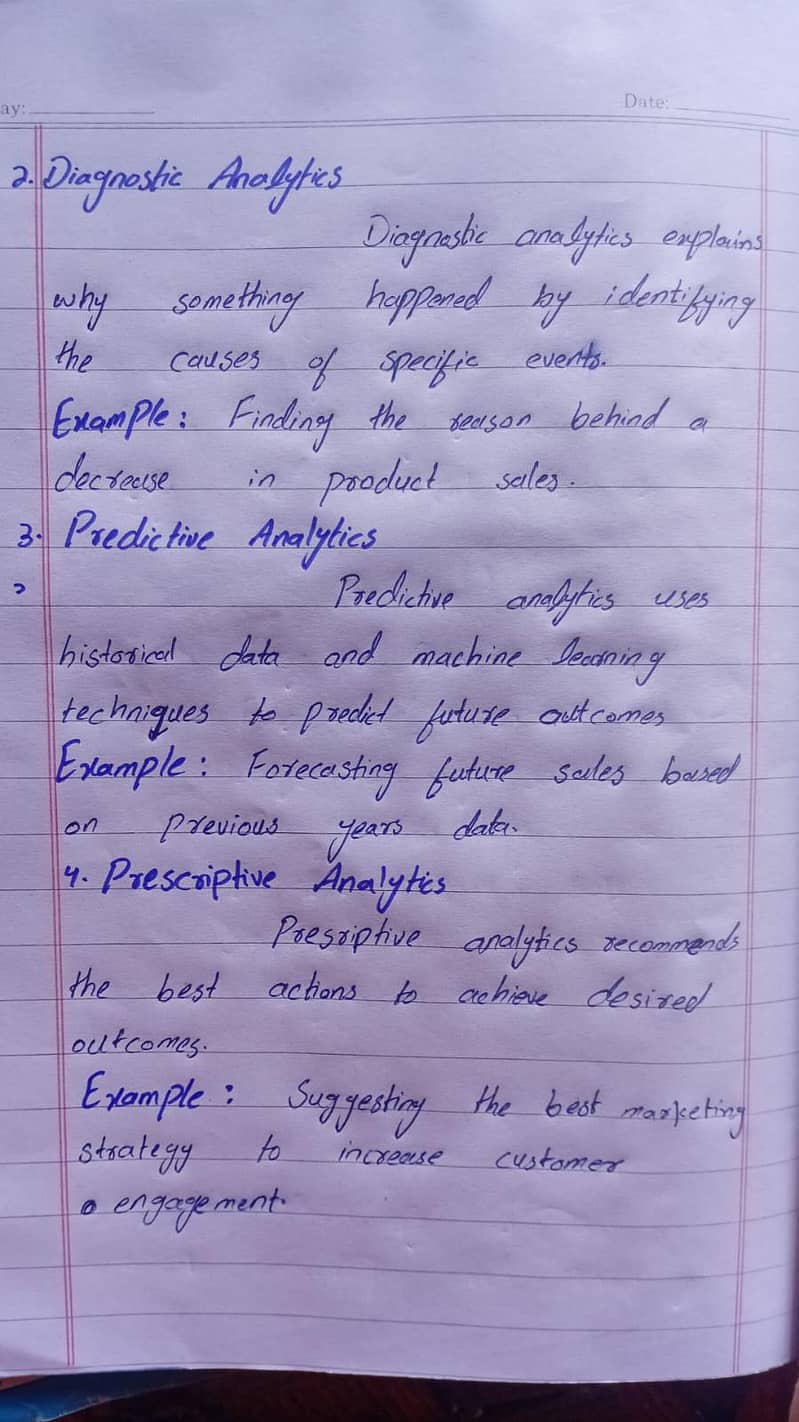 ay:
Date:
2. Diagnostic Analytics
Diagnostic analytics explains
why something happened by identifying
the causes of specific events.
Example: Finding the reason behind a
decrease in product sales.
3. Predictive Analytics
Predictive analytics uses
historical data and machine learning
techniques to predict future outcomes
Example: Forecasting future sales based
on previous years data.
4. Prescriptive Analytics
Presriptive analytics recommends
the best actions to achieve desired
outcomes.
Example: Suggesting the best marketing
strategy to increase customer
engagement.